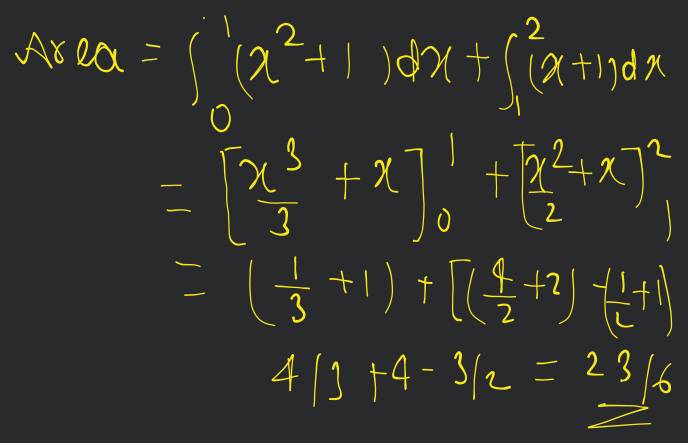 Area = ∫₀¹ (x² + 1) dx + ∫₁² (x + 1) dx
= [x³/3 + x]₀¹ + [x²/2 + x]₁²
= (1/3 + 1) + [(4/2 + 2) - (1/2 + 1)
4/3 + 4 - 3/2 = 23/6